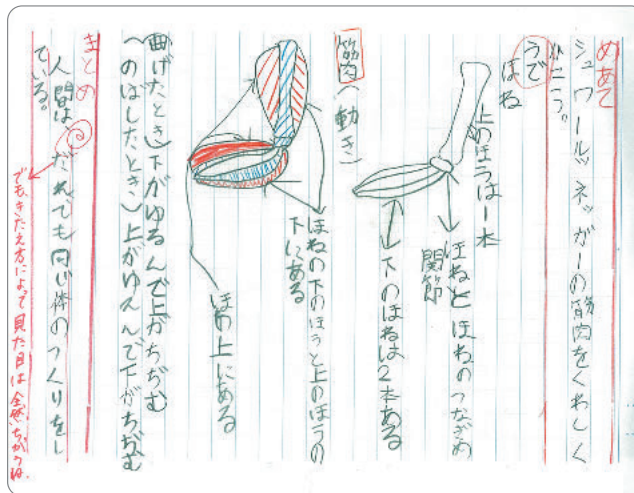 めあて
シュワールツネッガーの筋肉をくわしく
うで
ほね
上のほうは一本
ほねとほねのつなぎめ
関節
下のほねは2本ある
筋肉(動き)
ほねの下のほうと上のほうの
下にある
ほねの上にある
(曲げたとき)下がゆるんで上がちぢむ
(のばしたとき)上がゆるんで下がちぢむ
まとめ
人間はだれでも同じ体のつくりをし
ている。
でも、きたえ方によって見た目は全然ちがうね。